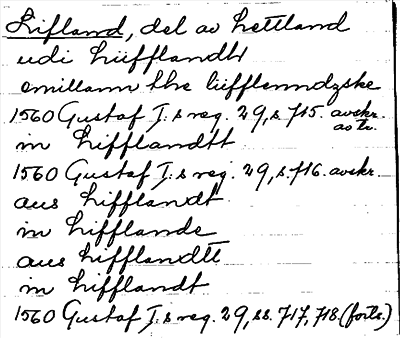 Lifland, del av Lettland
udi Liifflandtt
emillann the liifflenndzske
1560 Gustaf I:s reg. 29, s. 715. avskr. av tr.
in Lifflandtt
1560 Gustaf I:s reg. 29, s. 716. avskr.
aus Lifflandt
in Lifflande
aus Lifflandtt
in Lifflandt
1560 Gustaf I:s reg. 29, ss. 717, 718. (forts.)